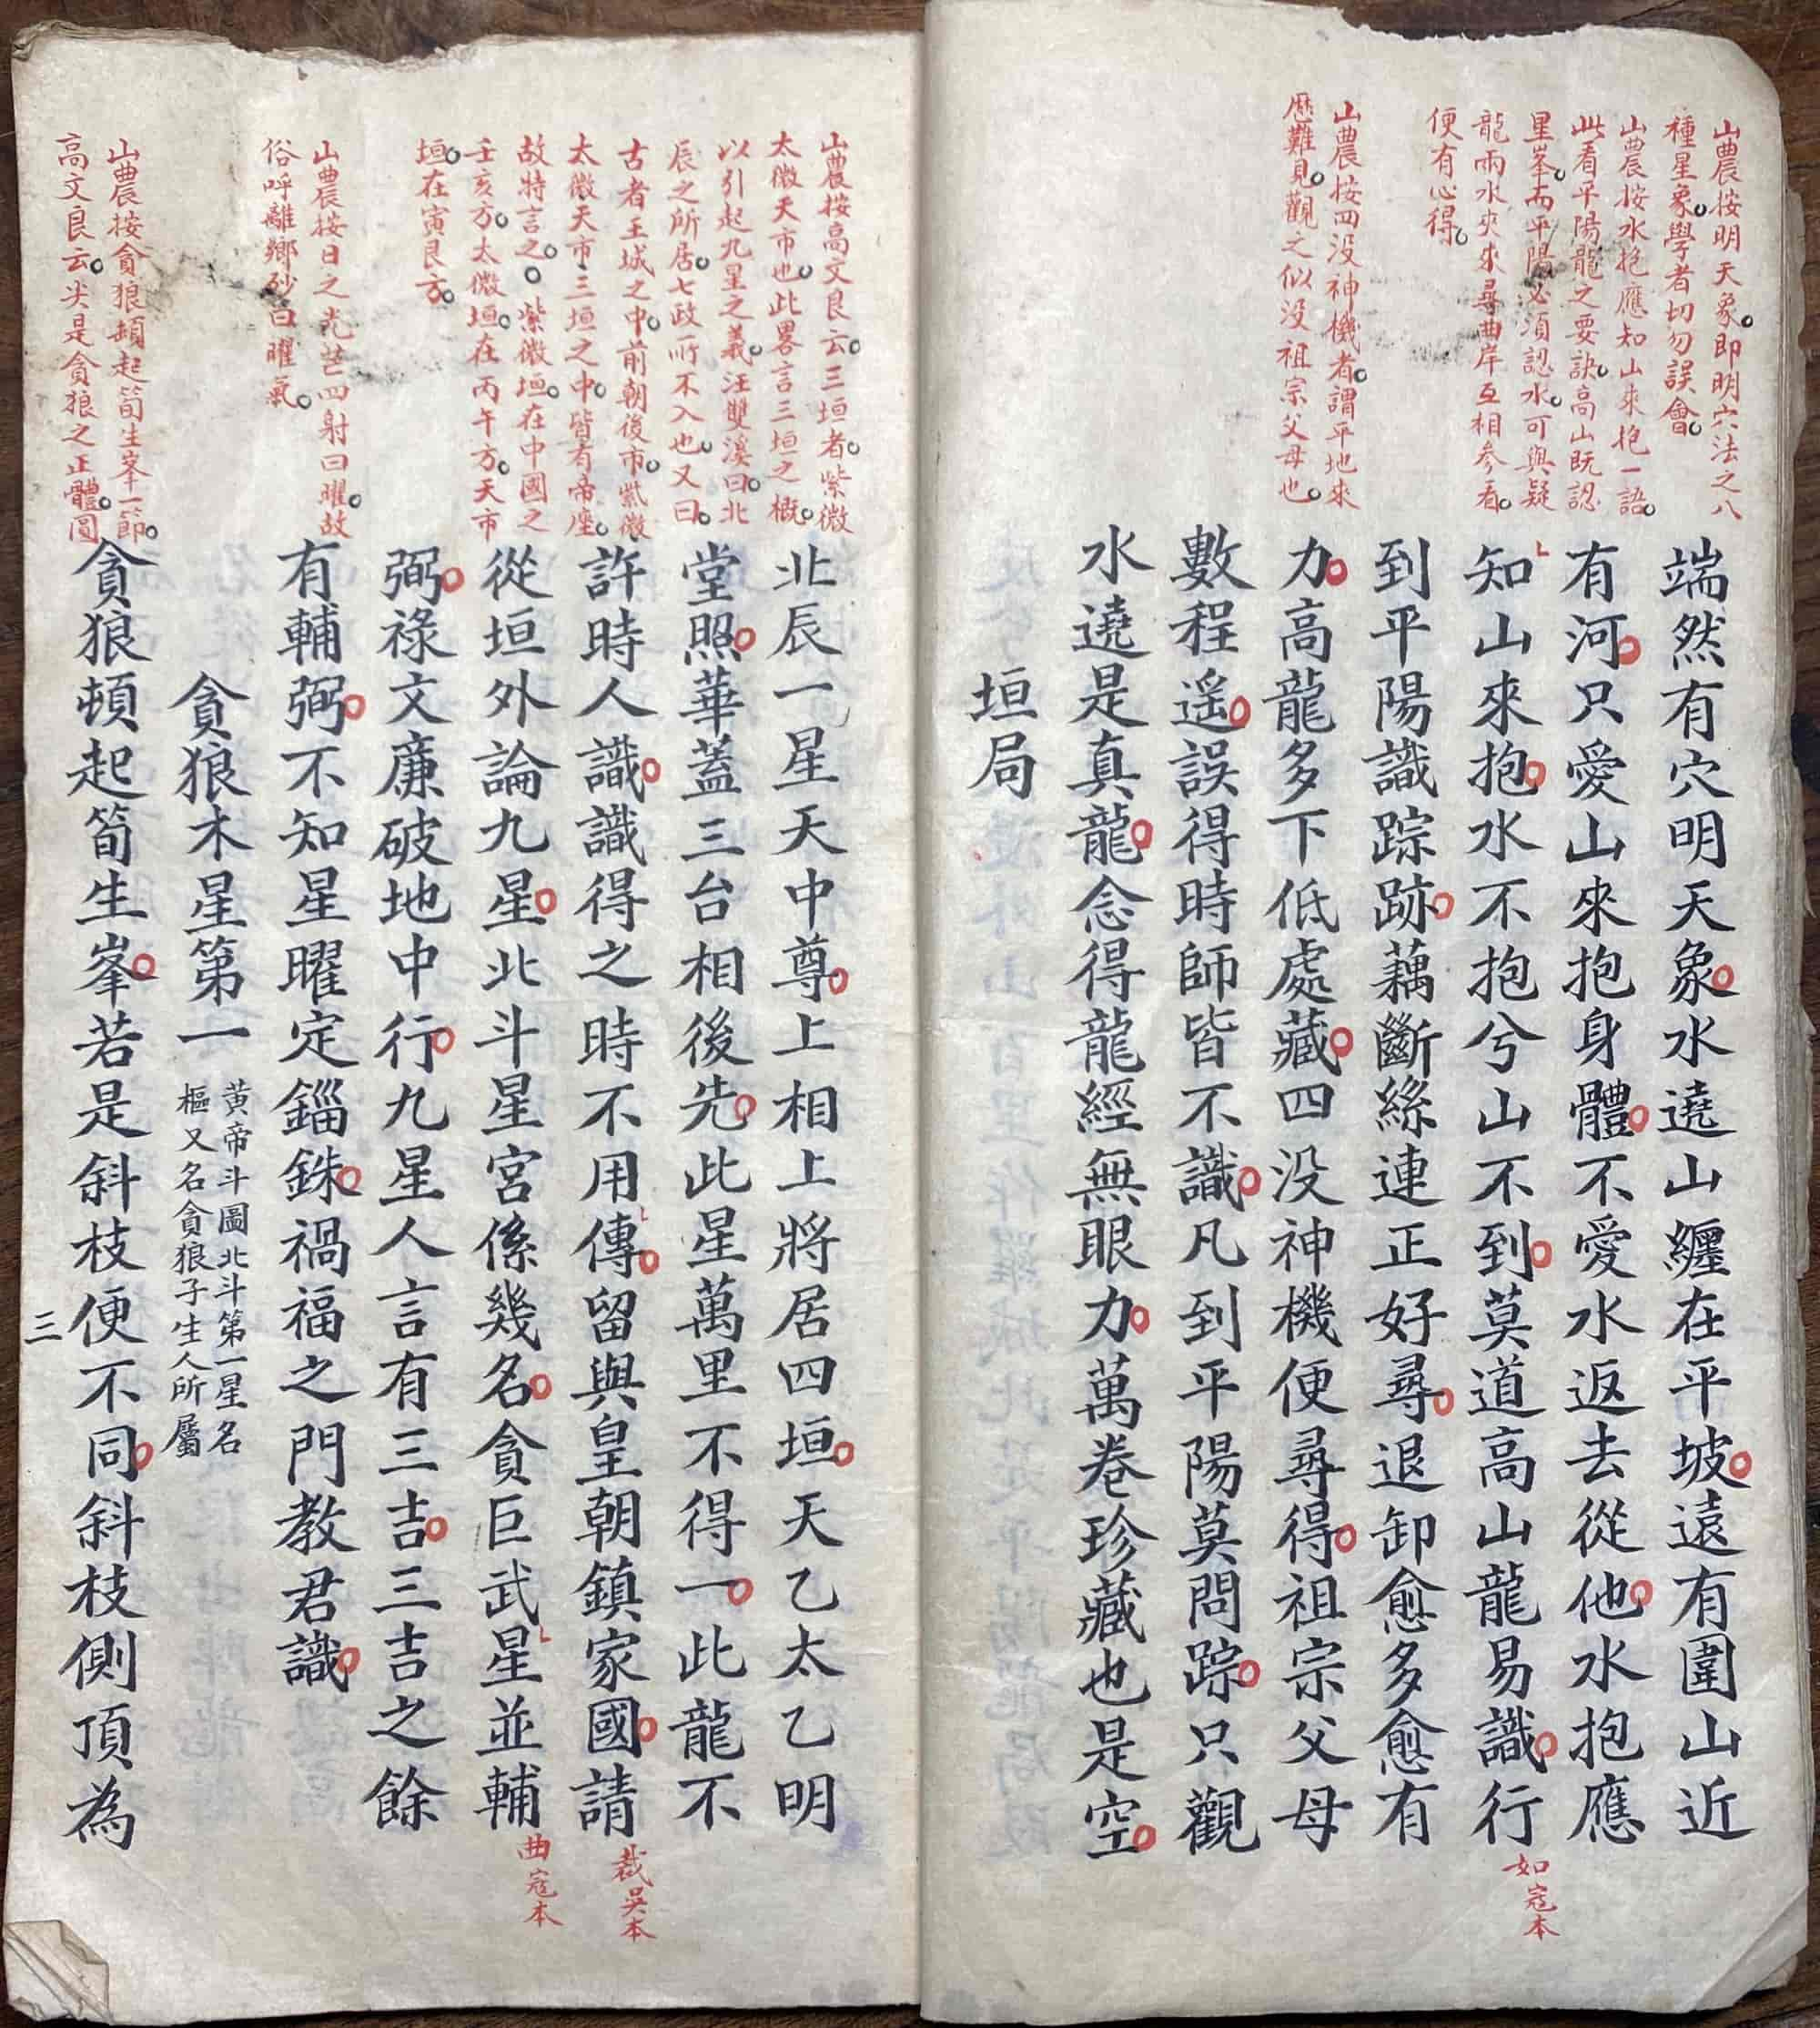 山農按明天象即明穴法之八
種星象學者切勿誤會
山農按水抱應知山來抱一語
此看平陽龍之要訣高山既認
星峯而平陽必須認水可與疑
龍兩水夾來尋曲岸互相參看
便有心得
山農按四没神機者謂平地來
歷難見觀之似没祖宗父母也
端然有穴明天象水遶山纏在平坡遠有圍山近
有河只愛山來抱身體不愛水返去從他水抱應
知山來抱水不抱兮山不到莫道高山龍易識行
如寇本
到平陽識踪跡藕斷絲連正好尋退卸愈多愈有
力高龍多下低處藏四没神機便尋得祖宗父母
數程遥誤得時師皆不識凡到平陽莫問踪只觀
水遶是真龍念得龍經無眼力萬卷珍藏也是空
垣局
山農按高文良云三垣者紫微
太微天市也此畧言三垣之概
以引起九星之義汪雙溪曰北
辰之所居七政所不入也又曰
古者王城之中前朝後市紫微
太微天市三垣之中皆有帝座
故特言之紫微垣在中國之
壬亥方太微垣在丙午方天市
垣在寅艮方
山農按日之光芒四射曰曜故
俗呼離鄉砂曰曜氣
山農按貪狼頓起笥生峯一節
高文良云尖是貪狼之正體圓
北辰一星天中尊上相上將居四垣天乙太乙明
堂照華蓋三台相後先此星萬里不得一此龍不
許時人識識得之時不用傳留與皇朝鎮家國請
裁吳本
從垣外論九星北斗星宮係幾名貪巨武星並輔
曲寇本
弼祿文廉破地中行九星人言有三吉三吉之餘
有輔弼不知星曜定錙銖禍福之門教君識
貪狼木星第一
黄帝斗圖北斗第一星名
樞又名貪狼子生人所屬
貪狼頓起笥生峯若是斜枝便不同斜枝側頂為
三